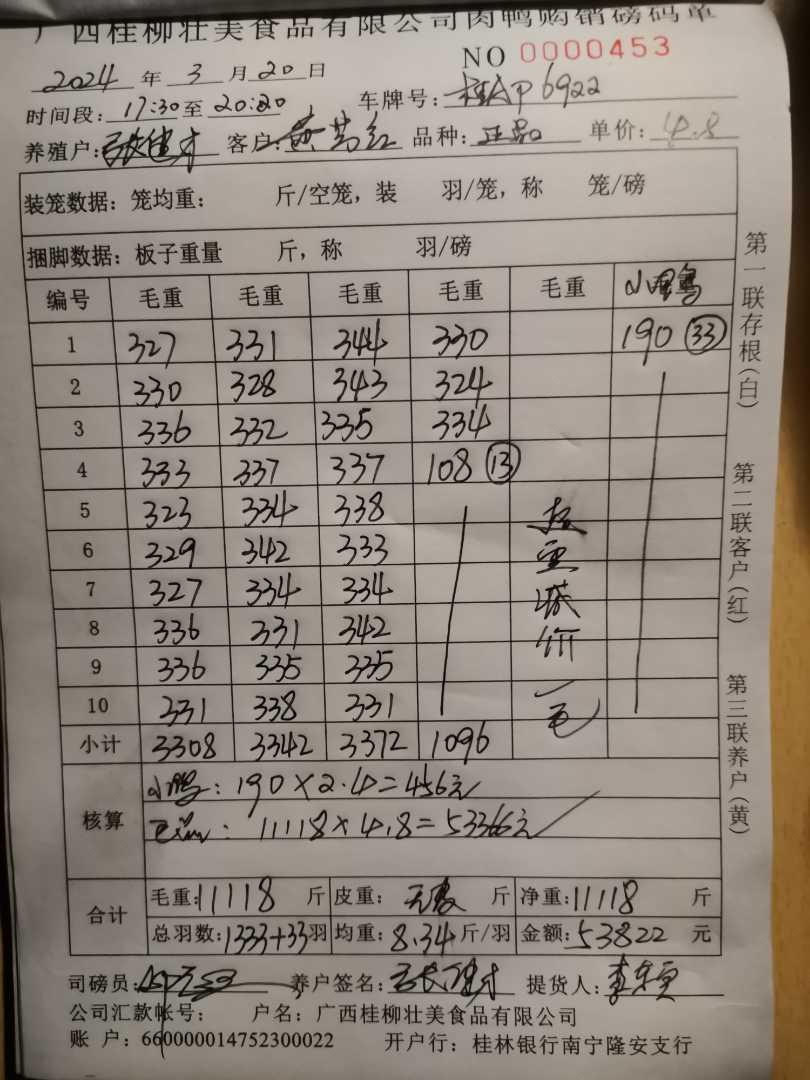 广西桂柳壮美食品有限公司肉鸭购销磅码单
NO 0000453
2024 年 3 月 20 日
时间段: 17:30 至 20:20 车牌号: 桂AP6922
养殖户: 客户: 黄 红 品种: 正品 单价: 4.8
装笼数据: 笼均重: 斤/空笼, 装 羽/笼, 称 笼/磅
捆脚数据: 板子重量 斤, 称 羽/磅
编号 毛重 毛重 毛重 毛重 毛重 小
1 327 331 344 330 190 (33)
2 330 328 343 324
3 336 332 335 334
4 333 337 337 108 (13)
5 323 334 338
6 329 342 333
7 327 334 334
8 336 331 342
9 336 335 335
10 331 338 331
小计 3308 3342 3372 1096
一毛
核算
小鸭: 190×2.4=456元
正品: 11118×4.8=53366元
合计
毛重: 11118 斤 皮重: 斤 净重: 11118 斤
总羽数: 1333+33 羽 均重: 8.34 斤/羽 金额: 53822 元
司磅员: 养户签名: 提货人:
公司汇款帐号: 户名: 广西桂柳壮美食品有限公司
账 户: 660000014752300022 开户行: 桂林银行南宁隆安支行
第一联存根(白)
第二联客户(红)
第三联养户(黄)